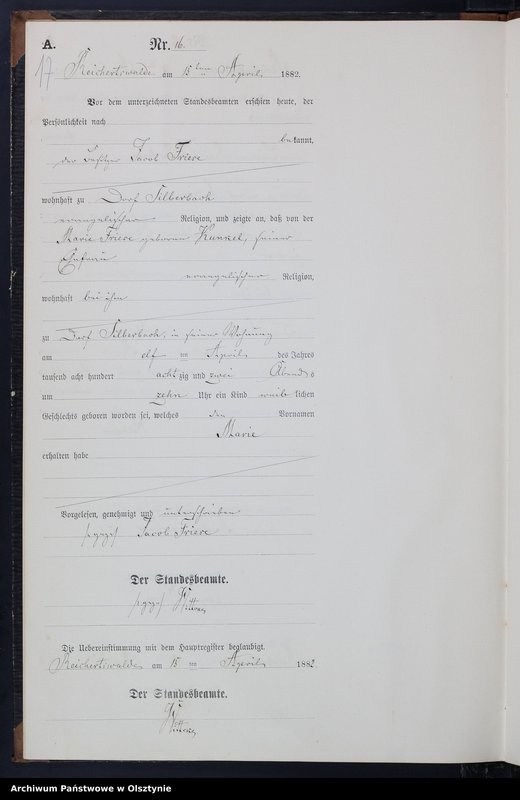 A. Nr. 16.
17 Reichertswalde am 15ten April 1882.
Vor dem unterzeichneten Standesbeamten erschien heute, der
Persönlichkeit nach
bekannt,
der Besitzer Jacob Friese
wohnhaft zu Dorf Silberbach
evangelischer Religion, und zeigte an, daß von der
Marie Friese geborene Kunkel, seiner
Ehefrau
evangelischer Religion,
wohnhaft bei ihm
zu Dorf Silberbach, in seiner Wohnung
am elf ten April des Jahres
tausend acht hundert achtzig und zwei Abends
um zehn Uhr ein Kind weiblichen
Geschlechts geboren worden sei, welches den Vornamen
Marie
erhalten habe
Vorgelesen, genehmigt und unterschrieben
(gez) Jacob Friese
Der Standesbeamte.
(gez)
Die Uebereinstimmung mit dem Hauptregister beglaubigt.
Reichertswalde am 15 ten April 1882
Der Standesbeamte.
Archiwum Państwowe w Olsztynie